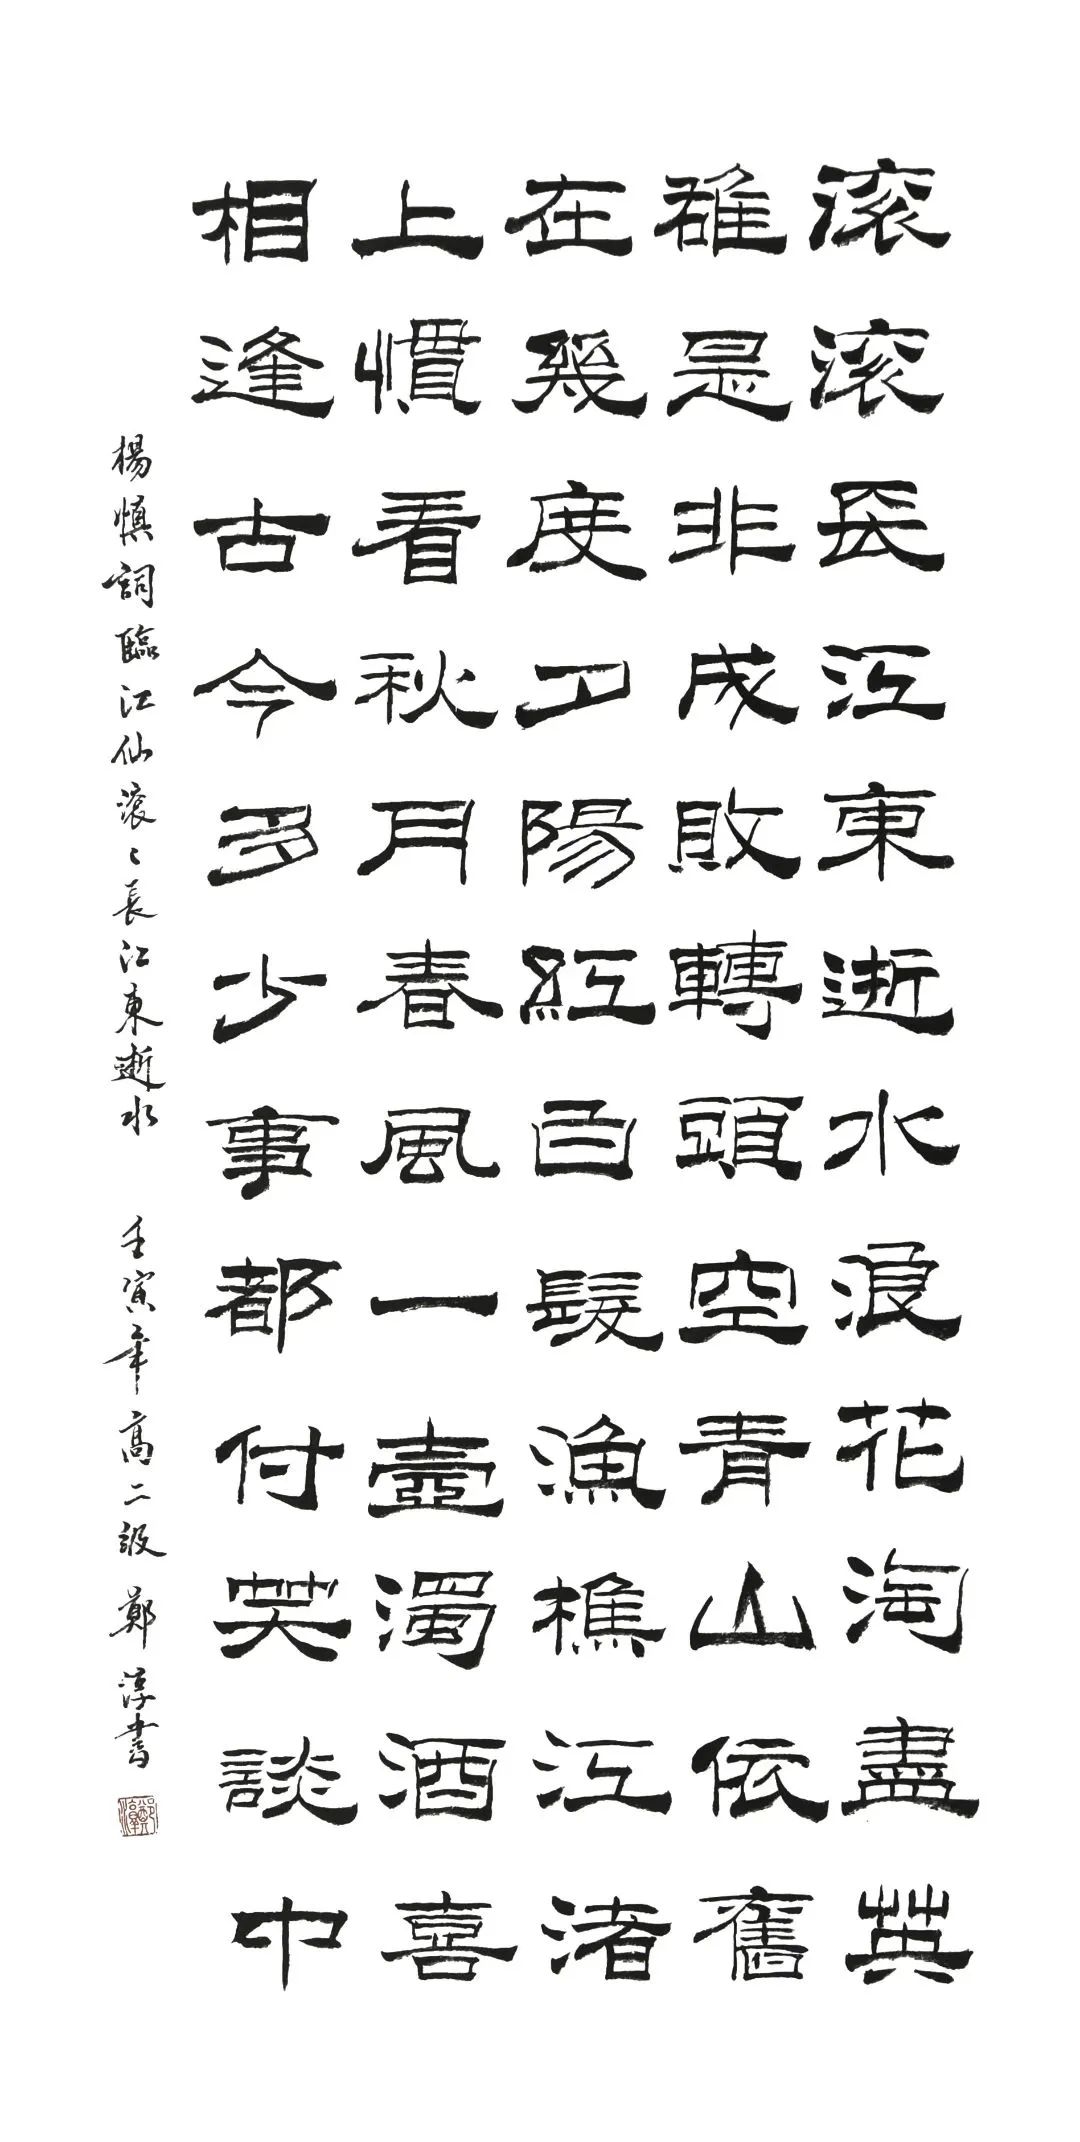 滚滚長江東逝水浪花淘盡英
雄是非成敗轉頭空青山依舊
在幾度夕陽紅白髮漁樵江渚
上慣看秋月春風一壺濁酒喜
相逢古今多少事都付笑談中
楊慎詞臨江仙滚〻長江東逝水 壬寅年高二級鄭淳書
鄭淳